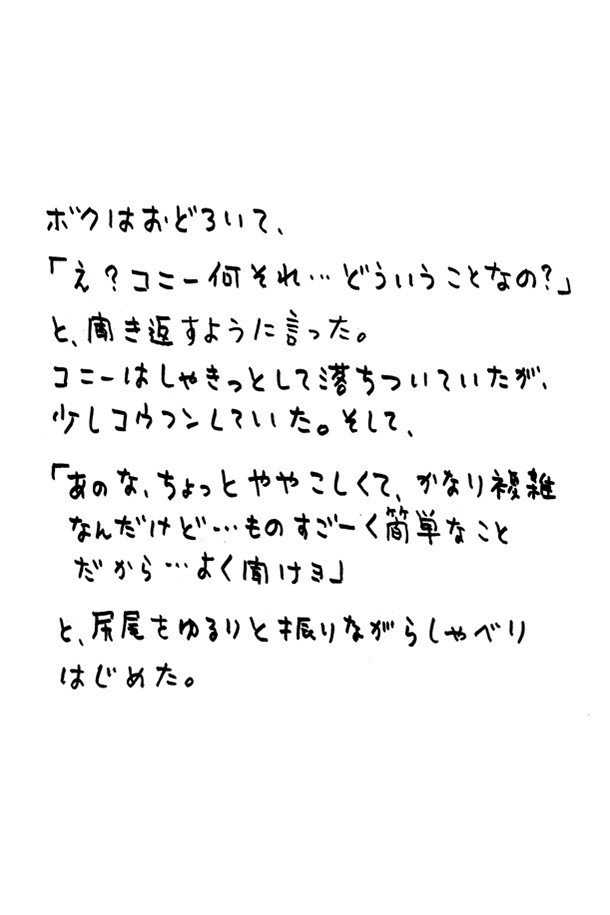 ボクはおどろいて、
「え？コニー何それ…どういうことなの？」
と、聞き返すように言った。
コニーはしゃきっとして落ちついていたが、
少しコウフンしていた。そして、
「あのな、ちょっとややこしくて、かなり複雑
なんだけど…ものすごーく簡単なこと
だから…よく聞けヨ」
と、尻尾をゆるりと振りながらしゃべり
はじめた。